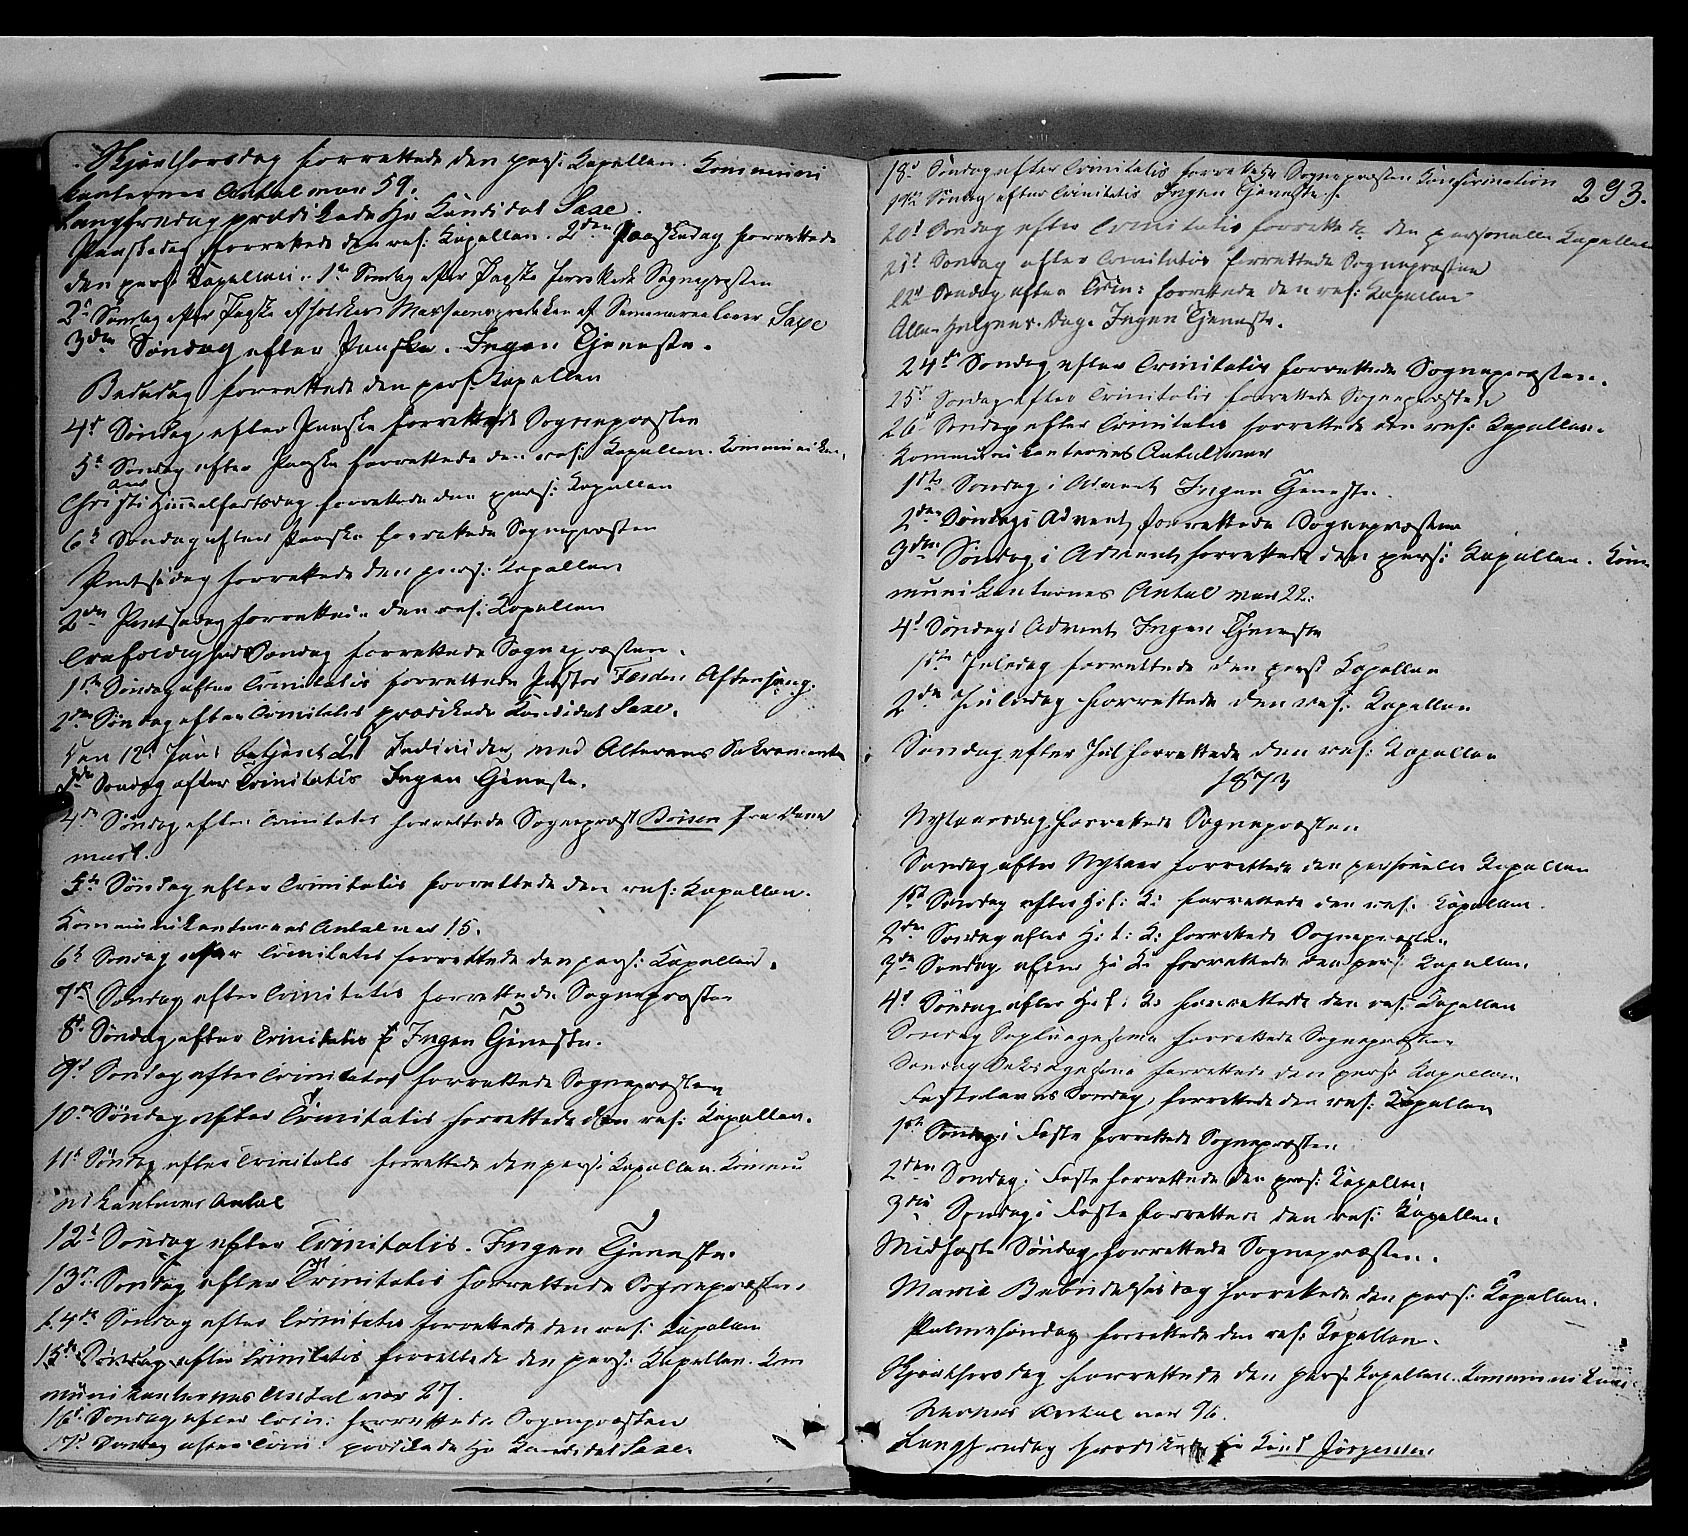 Skjærthorsdag forrettede den pers: Kapellan. Kommuni
kanternes Antal var 59.
Langfredag prædikede Hr Kandidat Saxe.
Paaskedag forrettede den res: Kapellan. 2den Paaskedag forrettede
den pers: Kapellan. 1ste Søndag efter Paaske forrettede Sognepræsten
2d Søndag efter Paaske afholdtes Missionsprædiken af Saxe
3die Søndag efter Paaske. Ingen Tjeneste.
Bededag forrettede den pers: Kapellan
4d Søndag efter Paaske forrettede Sognepræsten
5t Søndag efter Paaske forrettede den res: Kapellan. Kommunikan
Christi Himmelfartsdag forrettede den pers: Kapellan
6t Søndag efter Paaske forrettede Sognepræsten
Pintsedag forrettede den pers: Kapellan
2den Pintsedag forrettede den res: Kapellan
Trefoldigheds Søndag forrettede Sognepræsten.
1ste Søndag efter Trinitatis forrettede Pastor Aftensang.
2den Søndag efter Trinitatis prædikede Kandidat Saxe.
Den 12t Juni betjent 21 Individer med Alterens Sakramente
3die Søndag efter Trinitatis Ingen Tjeneste.
4de Søndag efter Trinitatis forrettede Sognepræst Boisen fra Dane
mark.
5te Søndag efter Trinitatis forrettede den res: Kapellan.
Kommunikanternes Antal var 15.
6t Søndag efter Trinitatis forrettede den pers: Kapellan.
7de Søndag efter Trinitatis forrettede Sognepræsten
8d Søndag efter Trinitatis Ingen Tjeneste.
9d Søndag efter Trinitatis forrettede Sognepræsten
10de Søndag efter Trinitatis forrettede den res: Kapellan.
11t Søndag efter Trinitatis forrettede den pers: Kapellan. Kommu
nikanternes Antal
12t Søndag efter Trinitatis. Ingen Tjeneste.
13d Søndag efter Trinitatis forrettede Sognepræsten.
14de Søndag efter Trinitatis forrettede den res: Kapellan
15de Søndag efter Trinitatis forrettede den pers: Kapellan. Kom
munikanternes Antal var 27.
16d Søndag efter Trin: forrettede Sognepræsten
17d Søndag efter Trin: prædikede Hr Kandidat Saxe.
18d Søndag efter Trinitatis forrettede Sognepræsten Konfirmation
293.
19de Søndag efter Trinitatis Ingen Tjeneste.
20d Søndag efter Trinitatis forrettede den personelle Kapellan
21d Søndag efter Trinitatis forrettede Sognepræsten
22d Søndag efter Trin: forrettede den res: Kapellan
Alle Helgens-Dag. Ingen Tjeneste.
24d Søndag efter Trinitatis forrettede Sognepræsten.
25d Søndag efter Trinitatis forrettede Sognepræsten
26d Søndag efter Trinitatis forrettede den res: Kapellan.
Kommunikanternes Antal var
1ste Søndag i Advent Ingen Tjeneste.
2den Søndag i Advent forrettede Sognepræsten
3die Søndag i Advent forrettede den pers: Kapellan. Kom
munikanternes Antal var 22.
4d Søndag i Advent Ingen Tjeneste
1ste Juledag forrettede den pers: Kapellan
2den Juledag forrettede den res: Kapellan
Søndag efter Jul forrettede den res: Kapellan
1873
Nytaarsdag forrettede Sognepræsten
Søndag efter Nytaar forrettede den personelle Kapellan
1ste Søndag efter H: 3: K: forrettede den res: Kapellan.
2den Søndag efter H: 3: K: forrettede Sognepræsten
3die Søndag efter H: 3 K: forrettede den pers: Kapellan.
4d Søndag efter H: 3: K: forrettede den res: Kapellan
Søndag Septuagesima forrettede Sognepræsten
Søndag Seksagesima forrettede den pers: Kapellan.
Fastelavns Søndag, forrettede den res: Kapellan
1ste Søndag i Faste forrettede Sognepræsten
2den Søndag i Faste forrettede den pers: Kapellan.
3die Søndag i Faste forrettede den res: Kapellan.
Midfaste Søndag forrettede Sognepræsten.
Maria Bebudelsesdag forrettede den pers: Kapellan.
Palmesøndag forrettede den res: Kapellan.
Skjærthorsdag forrettede den pers: Kapellan. Kommunikan
ternes Antal var 96.
Langfredag prædikede Hr Kand Jörgensen.